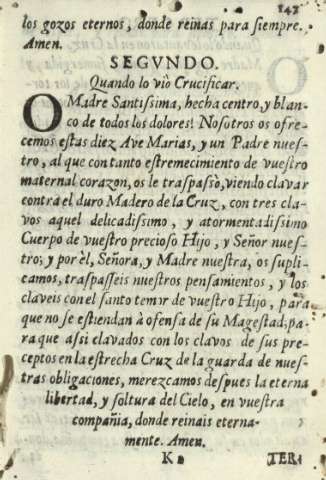 143
los gozos eternos, donde reinas para siempre.
Amen.
SEGVNDO.
Quando lo viò Crucificar.
O Madre Santissima, hecha centro, y blan-
co de todos los dolores! Nosotros os ofre-
cemos estas diez Ave Marias, y un Padre nues-
tro, al que con tanto estremecimiento de vuestro
maternal corazon, os le traspassò, viendo clavar
contra el duro Madero de la Cruz, con tres cla-
vos aquel delicadissimo, y atormentadissimo
Cuerpo de vuestro precioso Hijo, y Señor nues-
tro; y por èl, Señora, y Madre nuestra, os supli-
camos, traspasseis nuestros pensamientos, y los
claveis con el santo temor de vuestro Hijo, para
que no se estiendan à ofensa de su Magestad; pa-
ra que assi clavados con los clavos de sus pre-
ceptos en la estrecha Cruz de la guarda de nues-
tras obligaciones, merezcamos despues la eterna
libertad, y soltura del Cielo, en vuestra
compañia, donde reinais eterna-
mente. Amen.
K 2 TER-